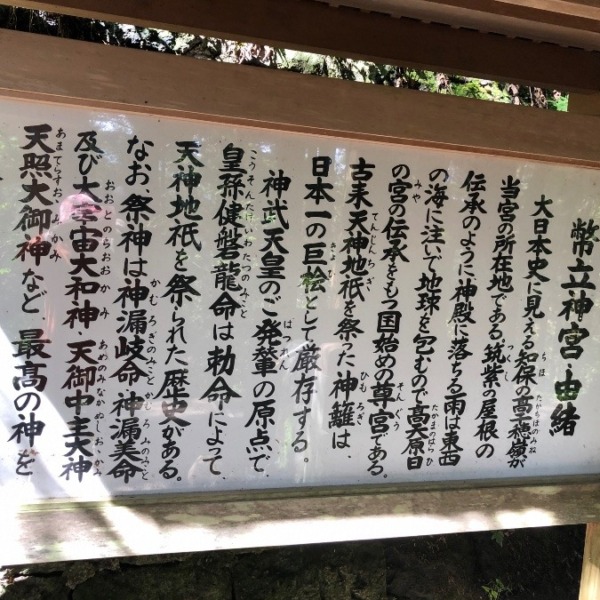 幣立神宮・由緒
大日本史に見える知保の高千穂嶺が
当宮の所在地である。筑紫の屋根の
伝承のように神殿に落ちる雨は東西
の海に注いで地球を包むので高天原日
の宮の伝承をもつ国始めの尊宮である。
古来天神地祇を祭った神籬は、
日本一の巨桧として厳存する。
神武天皇のご発輦の原点で、
皇孫健磐龍命は勅命によって、
天神地祇を祭られた歴史がある。
なお、祭神は神漏岐命・神漏美命
及び大宇宙大和神・天御中主大神
天照大御神など最高の神を